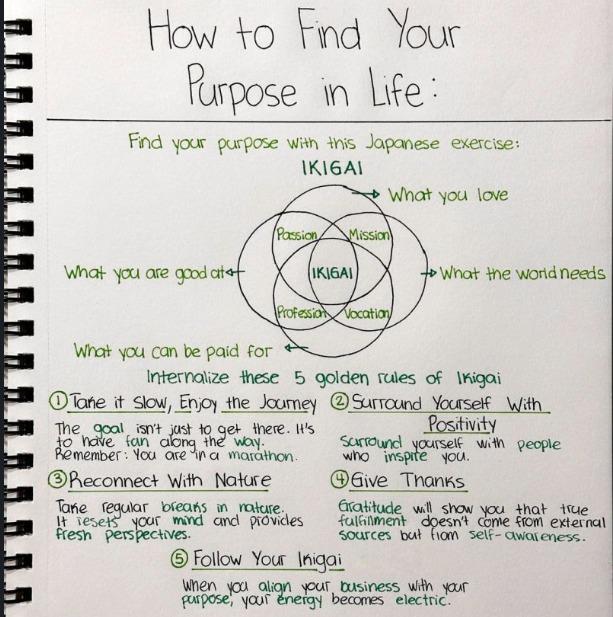 How to Find Your
Purpose in Life:
Find your purpose with this Japanese exercise:
IKIGAI
What you love
Passion
Mission
What you are good at
IKIGAI
What the world needs
Profession
Vocation
What you can be paid for
Internalize these 5 golden rules of Ikigai
① Take it Slow, Enjoy the Journey
The goal isn't just to get there. It's
to have fun along the way.
Remember: You are in a marathon.
② Surround Yourself With
Positivity
Surround yourself with people
who inspire you.
③ Reconnect With Nature
Take regular breaks in nature.
It resets your mind and provides
fresh perspectives.
④ Give Thanks
Gratitude will show you that true
fulfillment doesn't come from external
sources but from self-awareness.
⑤ Follow Your Ikigai
When you align your business with your
purpose, your energy becomes electric.